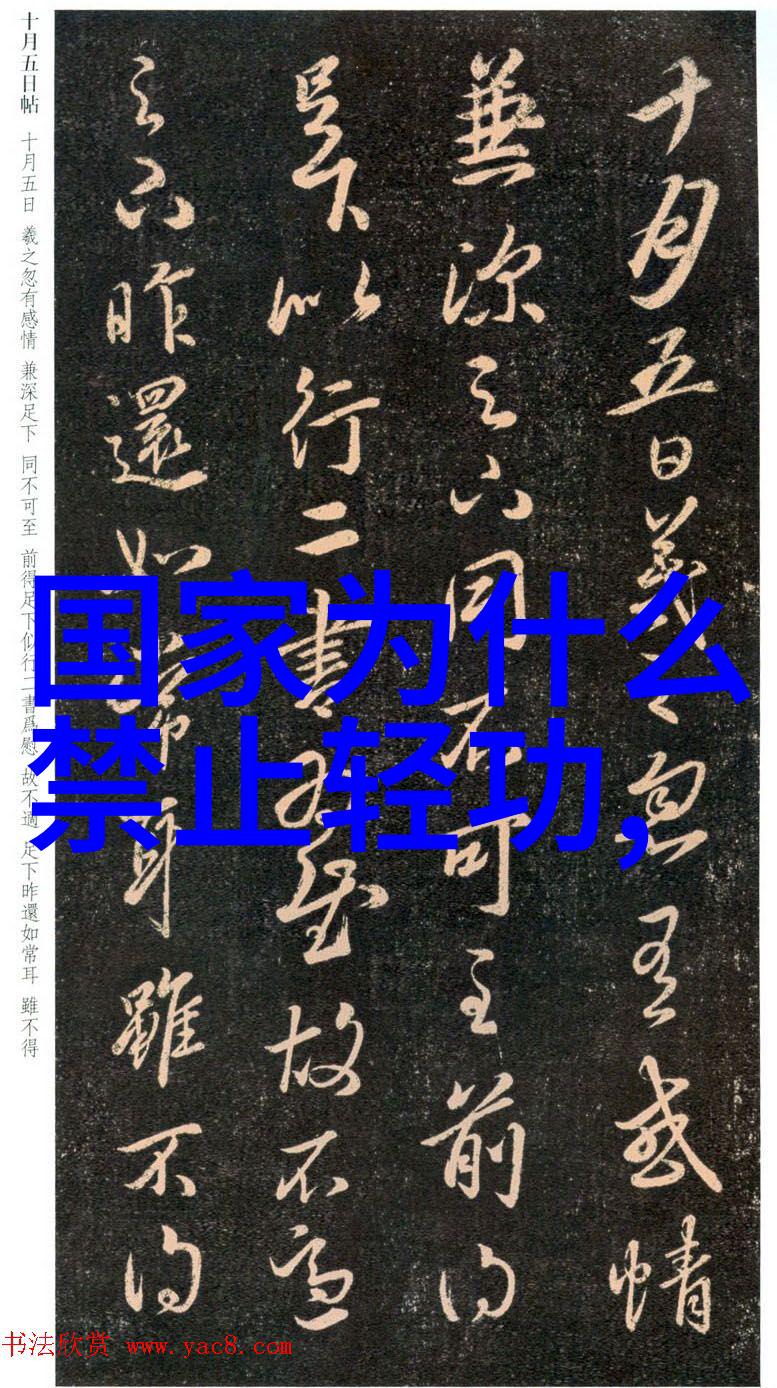 十月五日帖 十月五日 羲之忽有感情 兼深足下 同不可至 前得足下似行二書爲慰 故不適 足下昨還如常耳 雖不得
十月五日羲之忽有感情
兼深足下同不可至前得
足下似行二書爲慰故不適
足下昨還如常耳雖不得
国家为什么
禁止轻功,
书法欣赏 www.yac8.com